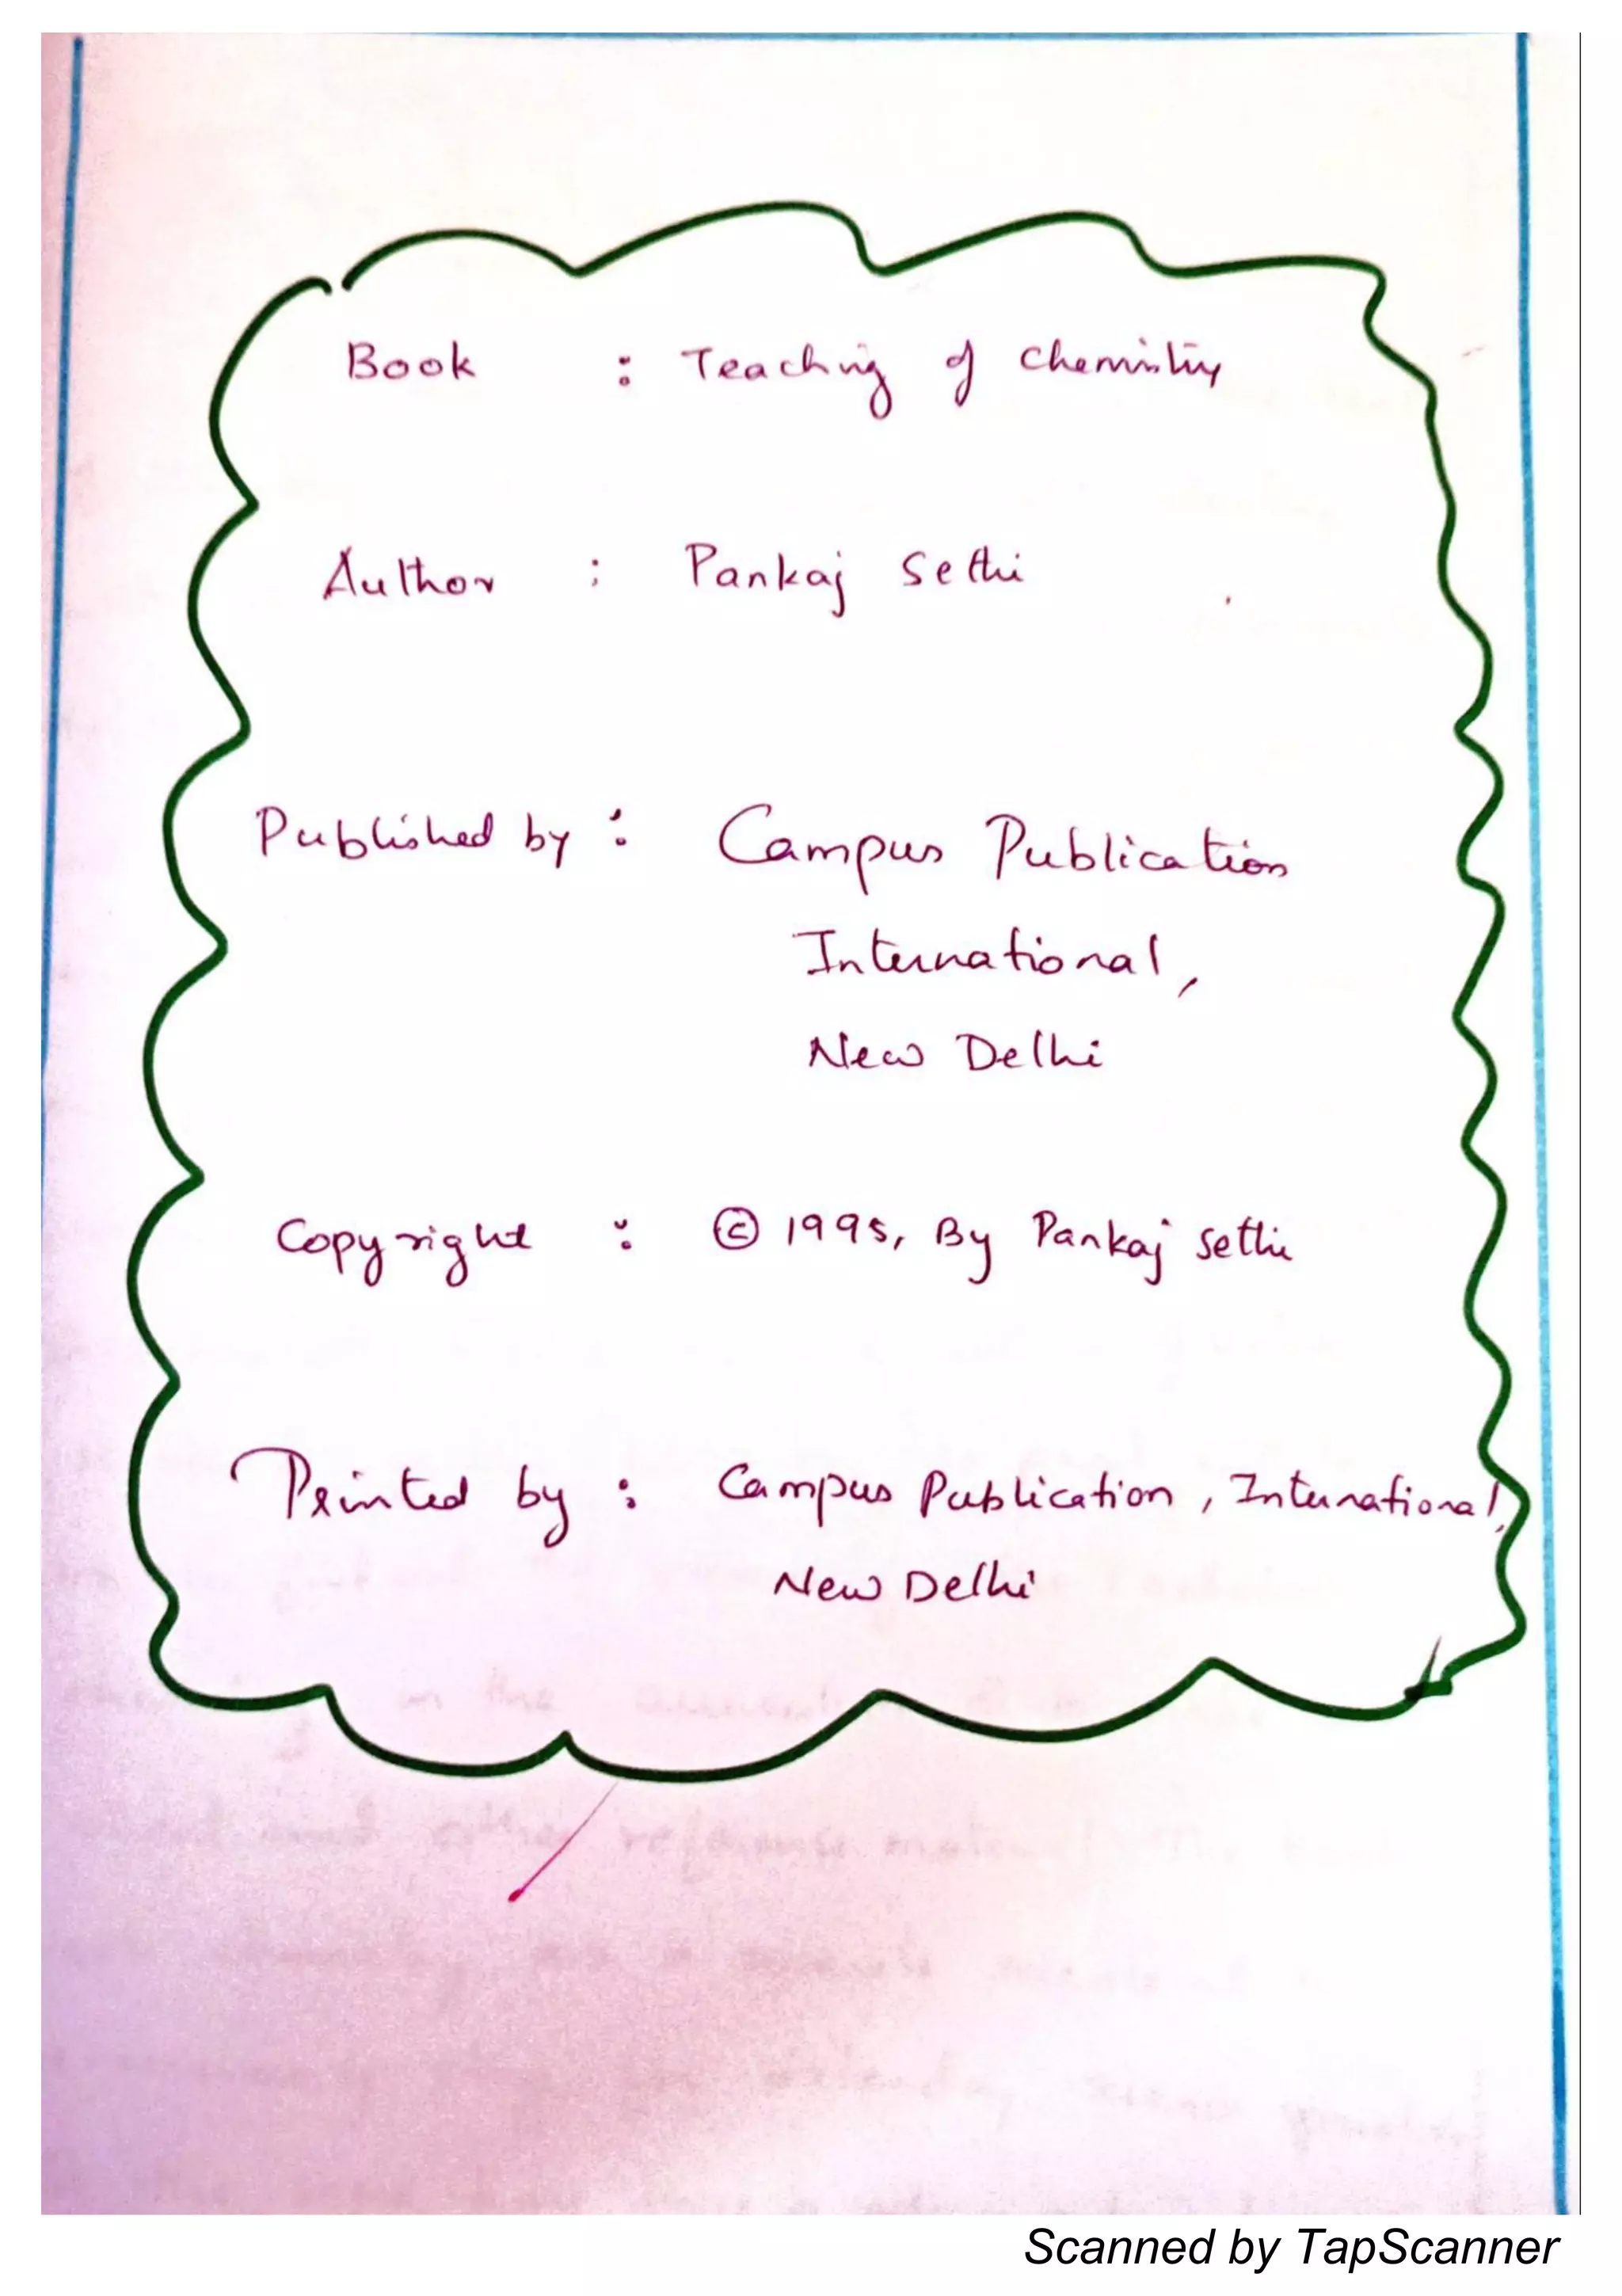 Book : Teaching of Chemistry
Author : Pankaj Sethi
Published by : Campus Publication
International,
New Delhi
Copyright : © 1995, By Pankaj Sethi
Printed by : Campus Publication, International,
New Delhi
Scanned by TapScanner